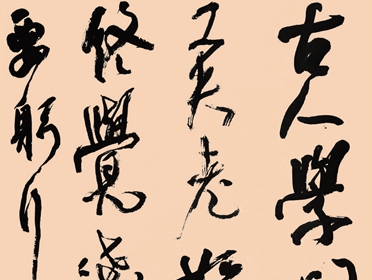 古人學
工夫老始
終覺淺
要躬行